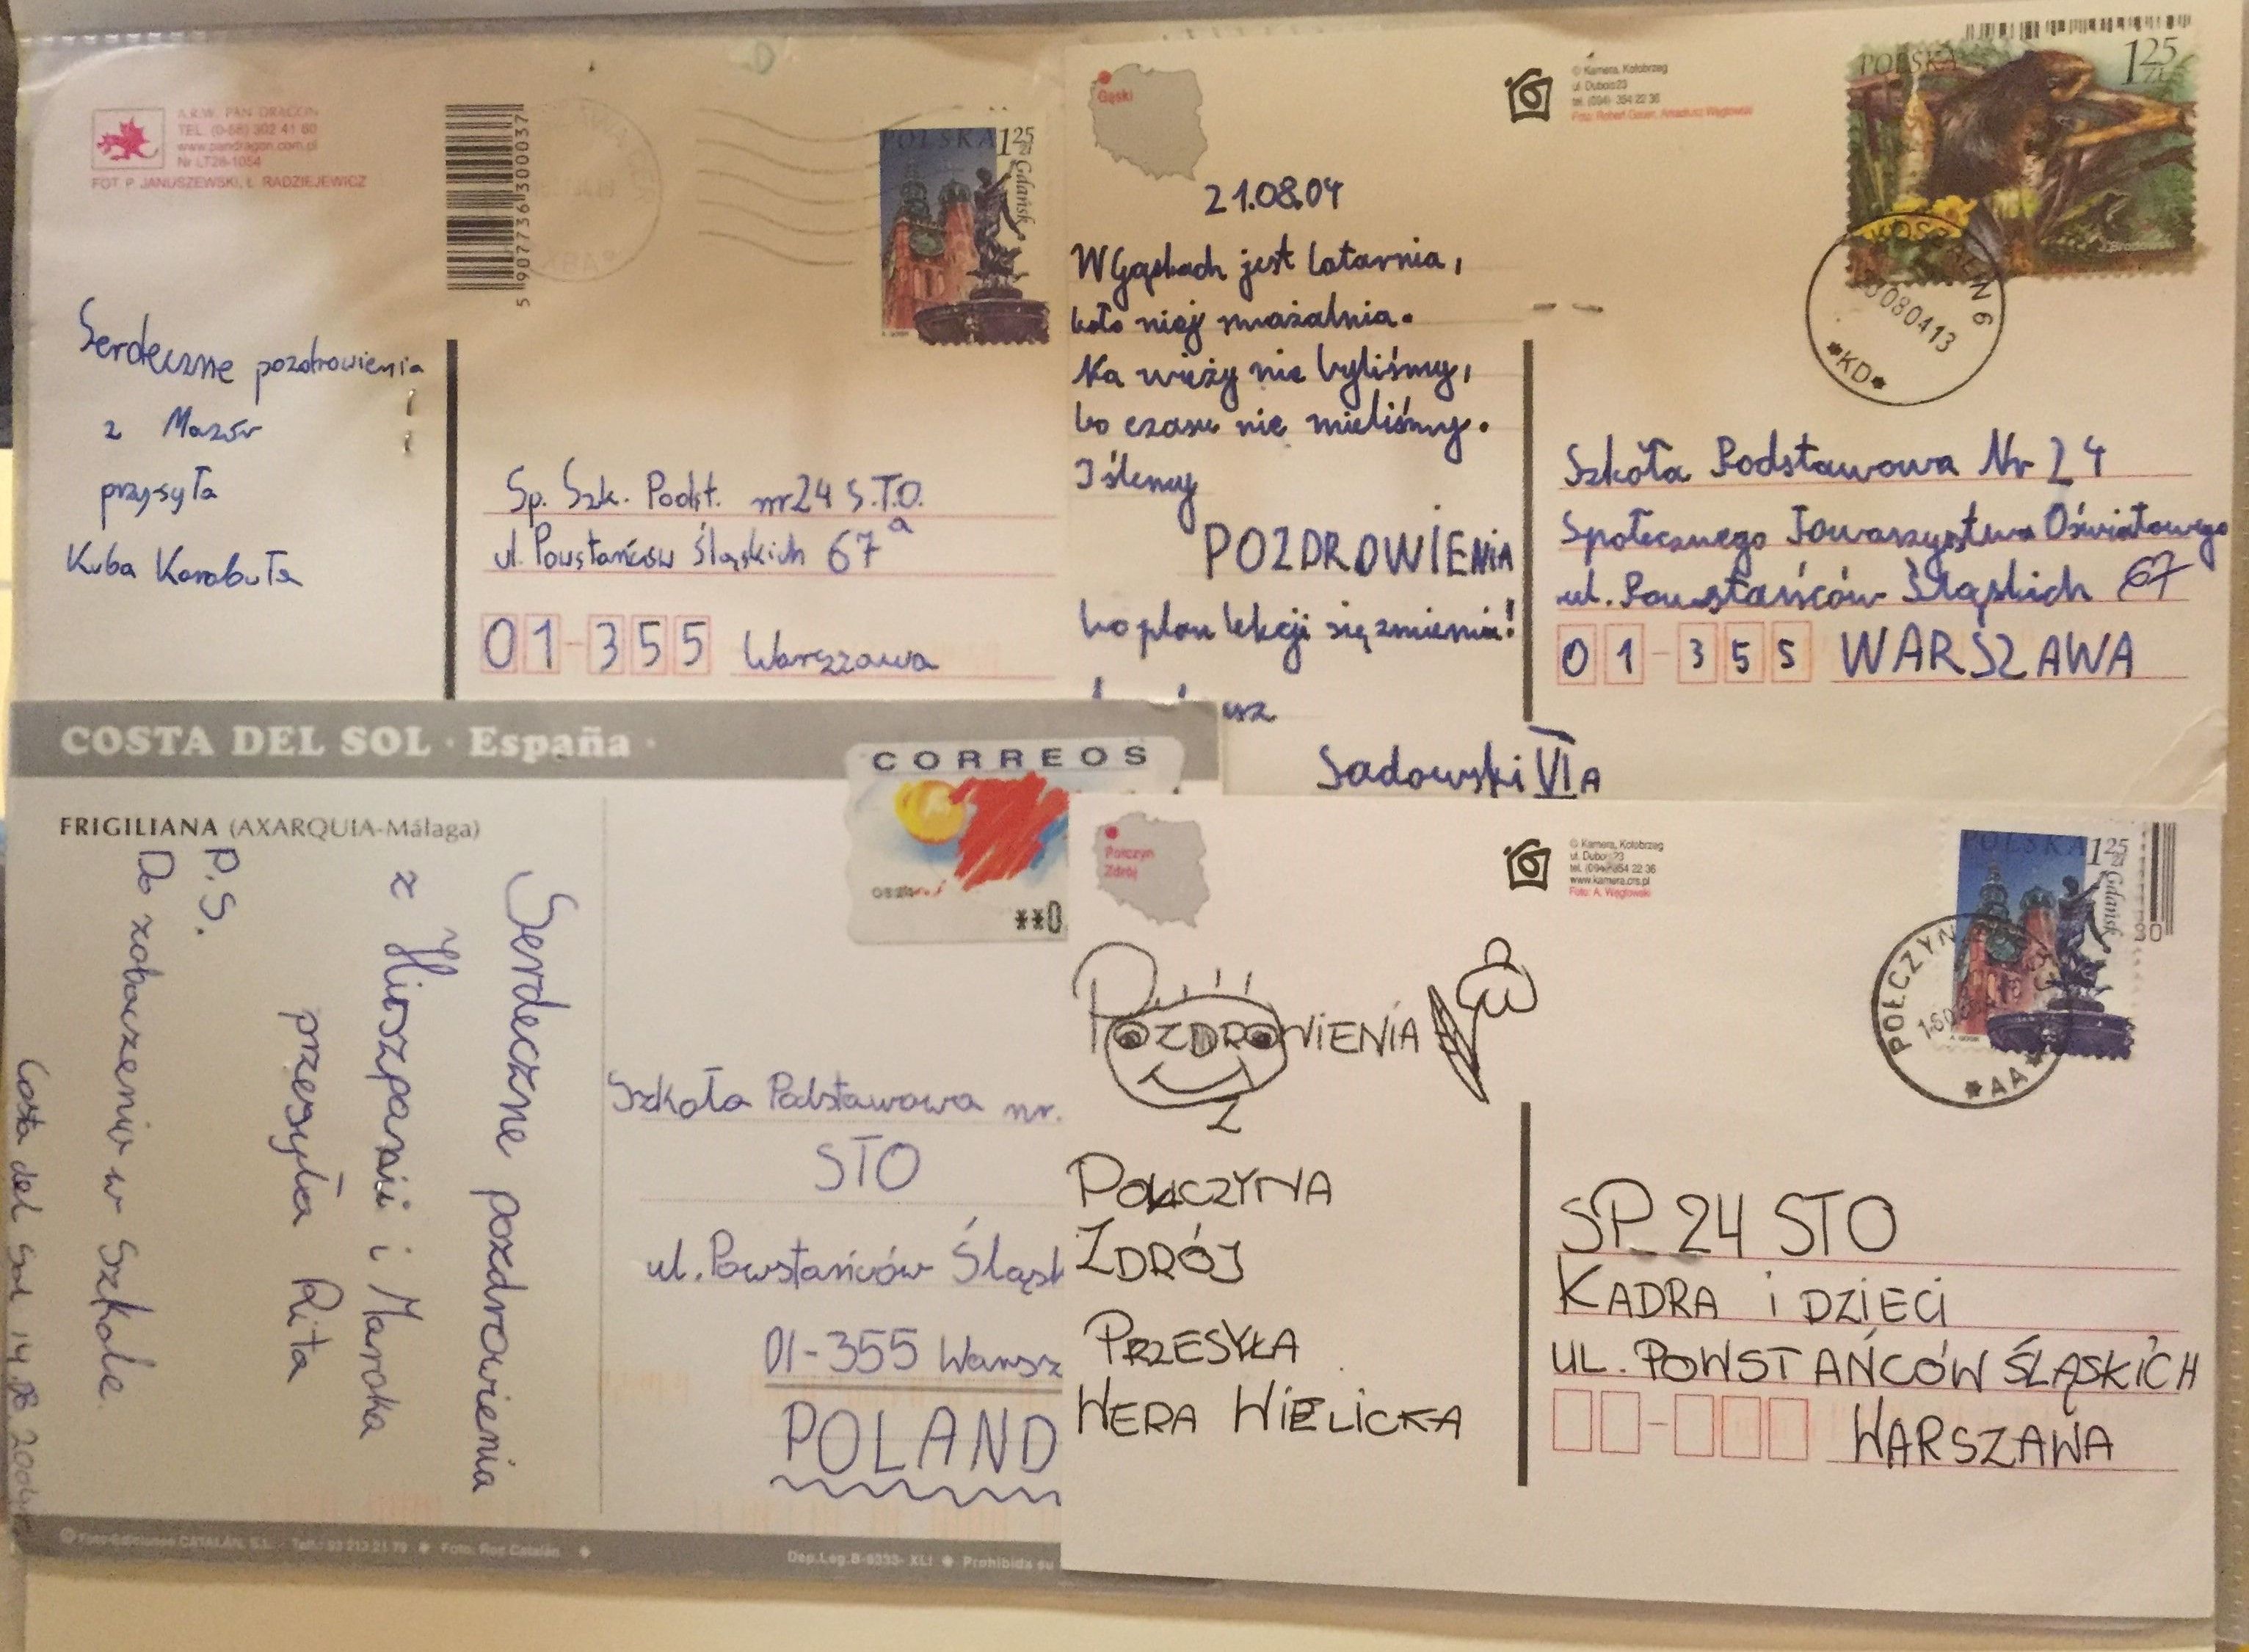 A.R.W. PAN DRAGON
TEL. (0-58) 302 41 60
www.pandragon.com.pl
Nr LT28-1054
FOT. P. JANUSZEWSKI, Ł. RADZIEJEWICZ
5 907736 300037
POLSKA 1 25 zł
Gdańsk
Serdeczne pozdrowienia
z Mazur
przysyła
Kuba Karabuła
Sp. Szk. Podst. nr 24 S.T.O.
ul. Powstańców Śląskich 67a
01-355 Warszawa
Gąski
© Kamera, Kołobrzeg
ul. Dubois 23
tel. (094) 354 22 36
POLSKA 1 25 ZŁ
KOSZALIN 6
*KD*
21.08.04
W Gąskach jest latarnia,
koło niej smażalnia.
Na wieży nie byliśmy,
bo czasu nie mieliśmy.
I ślemy
POZDROWIENIA
bo plan lekcji się zmienia!
usz
Sadowski VI A
Szkoła Podstawowa Nr 24
Społecznego Towarzystwa Oświatowego
ul. Powstańców Śląskich 67
01-355 WARSZAWA
COSTA DEL SOL · España ·
FRIGILIANA (AXARQUIA-Málaga)
CORREOS
**0
Serdeczne pozdrowienia
z Hiszpanii i Maroka
przesyła Rita
P.S.
Do zobaczenia w Szkole
Costa del Sol 14.08.2004
Szkoła Podstawowa nr.
STO
ul. Powstańców Śląsk
01-355 Warsz
POLAND
Tel.: 93 213 21 79 Foto: Roc Catalán
Dep. Leg. B-9333-XLI Prohibida su
Połczyn
Zdrój
© Kamera, Kołobrzeg
ul. Dubois 23
tel. (094) 354 22 36
www.kamera.crs.pl
Foto: A. Węgłowski
POLSKA 1 25 zł
Gdańsk
POŁCZYN
*AA*
POZDROWIENIA
Z
POŁCZYNA
ZDRÓJ
PRZESYŁA
WERA WIELICKA
SP 24 STO
KADRA i DZIECI
UL. POWSTAŃCÓW ŚLĄSKICH
WARSZAWA